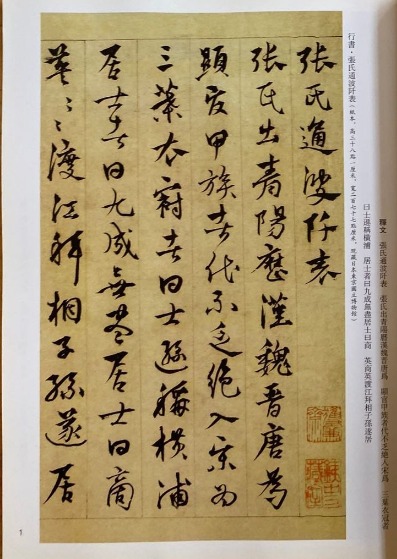 行書·張氏通波阡表（紙本，高二十八點一厘米，寬二百七十七點厘米，現藏日本東京國立博物館）
張氏通波阡表
張氏出青陽歷漢魏晉唐為
顯官甲族者代不乏絕入宋為
三葉衣冠者曰士遜稱橫浦
居士者曰九成無盡居士曰商
英英渡江拜相子孫遂居
釋文 張氏通波阡表 張氏出青陽歷漢魏晉唐為 顯官甲族者代不乏絕入宋為 三葉衣冠者
曰士遜稱橫浦 居士者曰九成無盡居士曰商 英商英渡江拜相子孫遂居
1